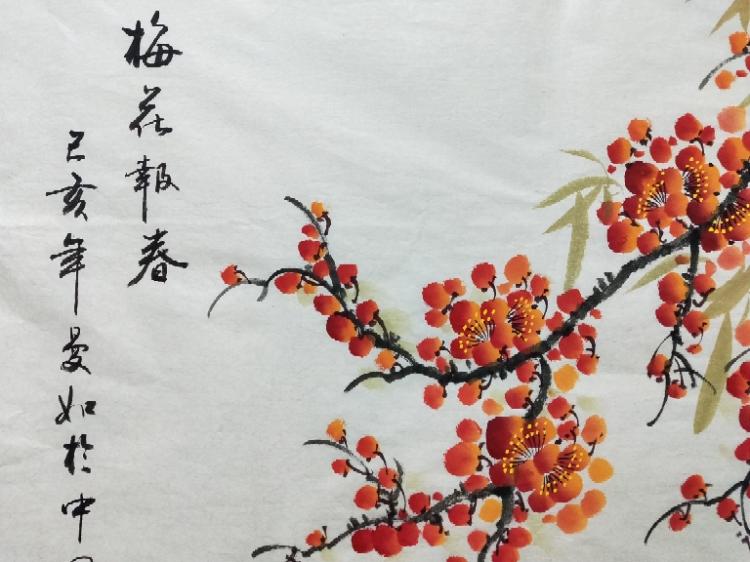 梅花報春
己亥年曼如於中